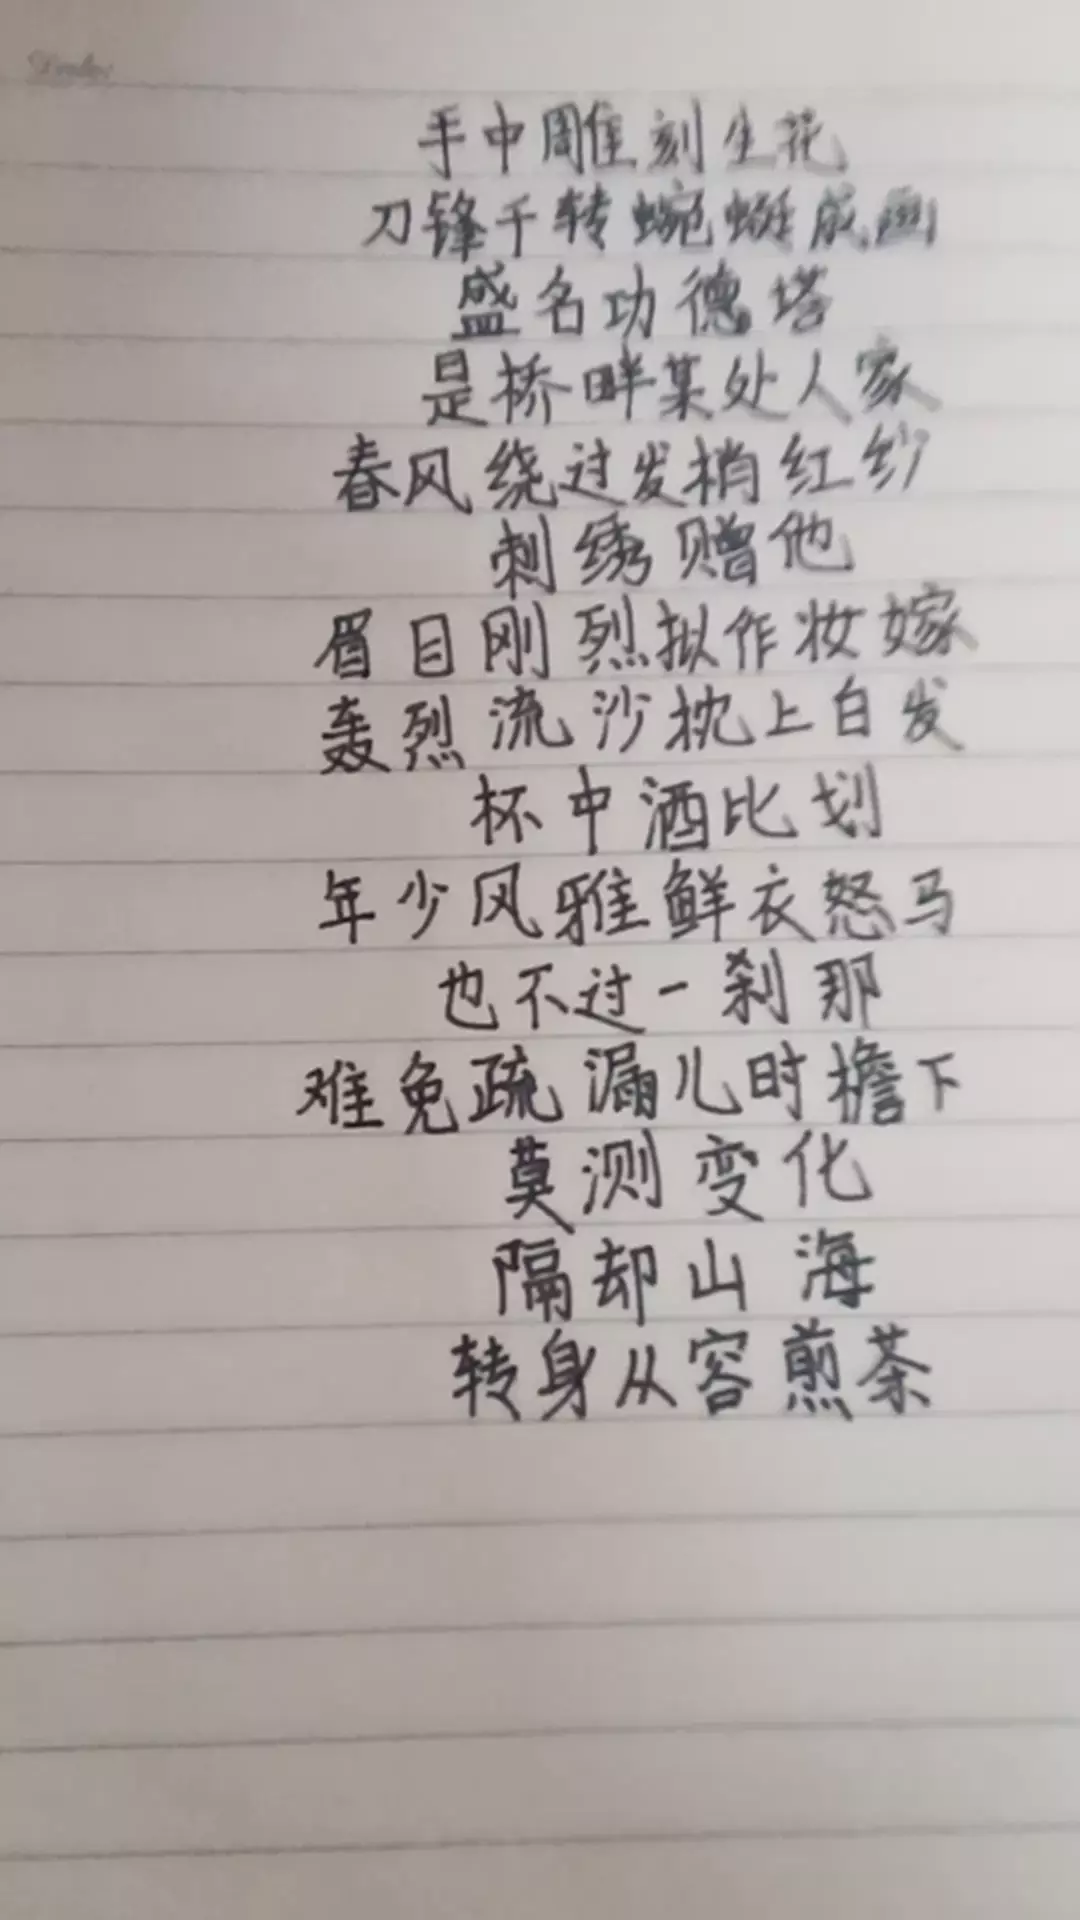 手中雕刻生花
刀锋千转蜿蜒成画
盛名功德塔
是桥畔某处人家
春风绕过发梢红纱
刺绣赠他
眉目刚烈拟作妆嫁
轰烈流沙枕上白发
杯中酒比划
年少风雅鲜衣怒马
也不过一刹那
难免疏漏儿时檐下
莫测变化
隔却山海
转身从容煎茶